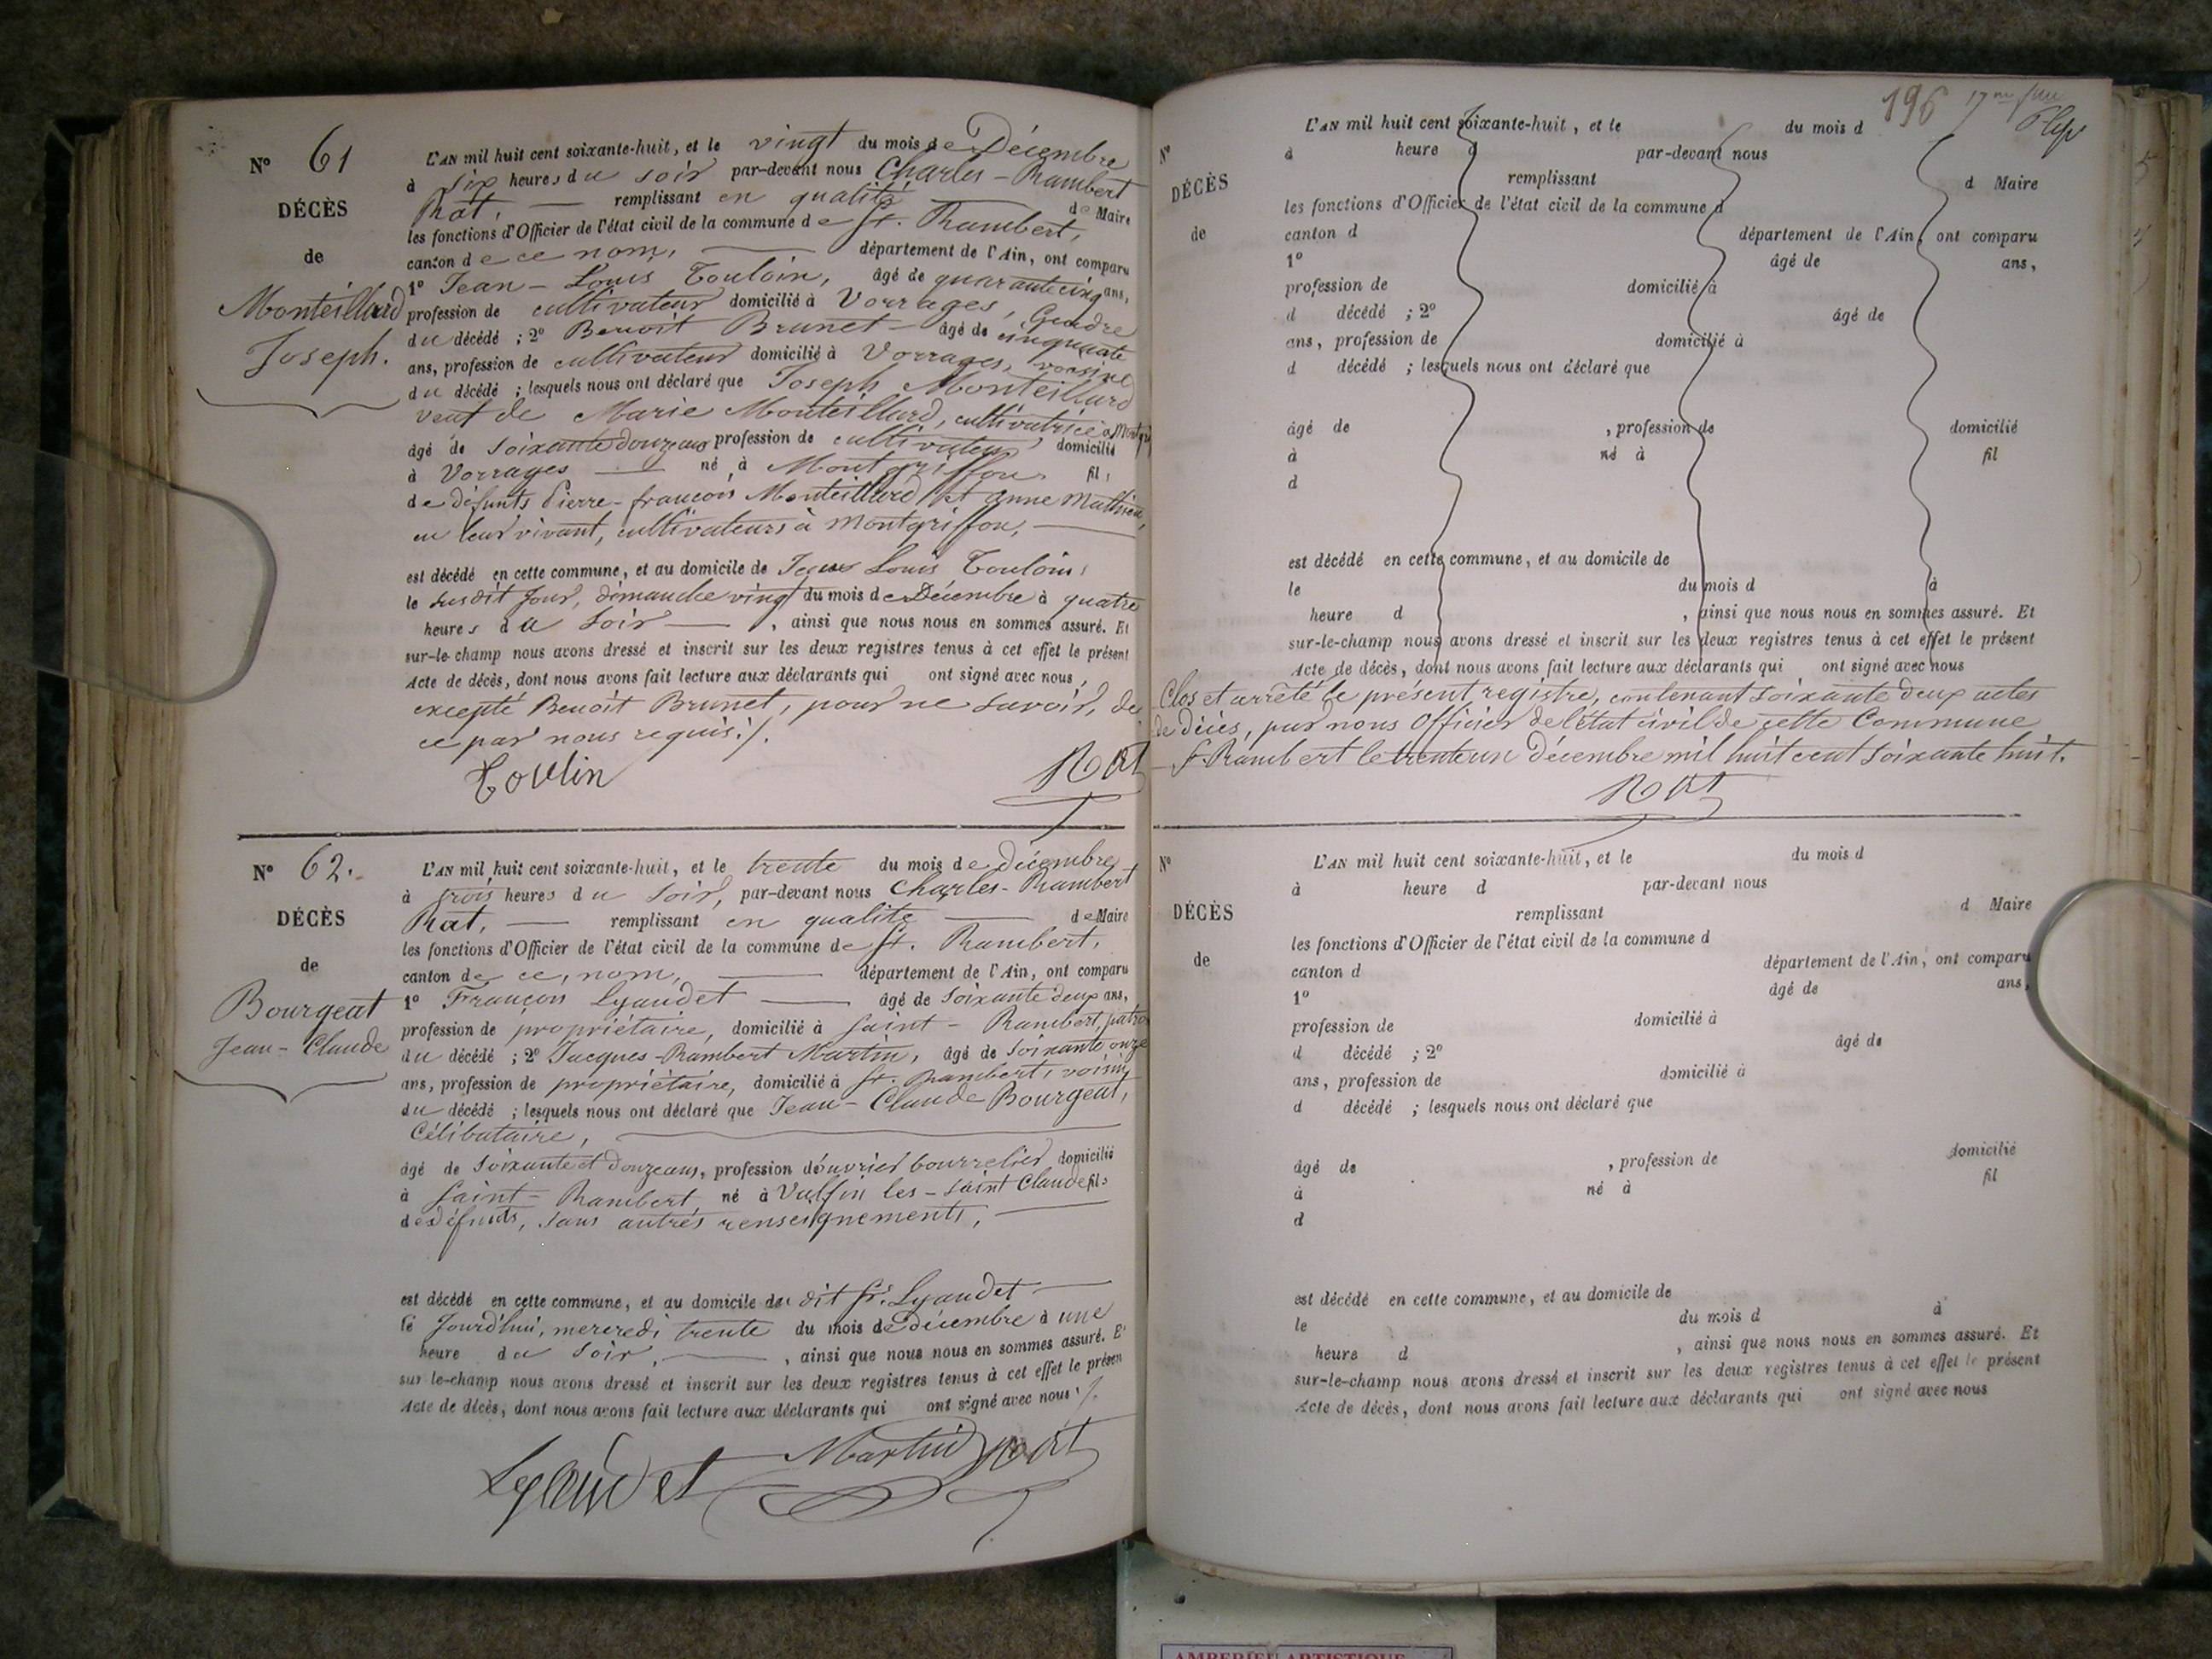 N° 61
DÉCÈS
de
Monteillard
Joseph.
L'AN mil huit cent soixante-huit, et le vingt du mois de Décembre
à six heures du soir par-devant nous Charles-Rambert
Rat, remplissant en qualité de Maire
les fonctions d'Officier de l'état civil de la commune de St. Rambert,
canton de ce nom, département de l'Ain, ont comparu
1° Jean-Louis Touloin, âgé de quarante cinq ans,
profession de cultivateur domicilié à Vorrages, Gendre
du décédé ; 2° Benoit Brunet âgé de cinquante
ans, profession de cultivateur domicilié à Vorrages, voisin
du décédé ; lesquels nous ont déclaré que Joseph Monteillard
veuf de Marie Monteillard, cultivatrice à
âgé de soixante douze ans profession de cultivateur domicilié
à Vorrages né à Montgriffon fils
de défunts Pierre-françois Monteillard et Anne Mathieu,
en leur vivant, cultivateurs à Montgriffon,
est décédé en cette commune, et au domicile de Jean Louis Touloin,
le susdit jour, dimanche vingt du mois de Décembre à quatre
heures du soir, ainsi que nous nous en sommes assuré. Et
sur-le-champ nous avons dressé et inscrit sur les deux registres tenus à cet effet le présent
Acte de décès, dont nous avons fait lecture aux déclarants qui ont signé avec nous,
excepté Benoit Brunet, pour ne savoir, de
ce par nous requis./.
Toulin Rat
N° 62.
DÉCÈS
de
Bourgeat
Jean-Claude
L'AN mil huit cent soixante-huit, et le trente du mois de décembre
à trois heures du soir, par-devant nous Charles-Rambert
Rat, remplissant en qualité de Maire
les fonctions d'Officier de l'état civil de la commune de St. Rambert,
canton de ce nom, département de l'Ain, ont comparu
1° François Lyaudet âgé de soixante deux ans,
profession de propriétaire, domicilié à Saint-Rambert, patron
du décédé ; 2° Jacques-Rambert Martin, âgé de soixante onze
ans, profession de propriétaire, domicilié à St. Rambert, voisin
du décédé ; lesquels nous ont déclaré que Jean-Claude Bourgeat,
Célibataire,
âgé de soixante et douze ans, profession d'ouvrier bourrelier domicilié
à Saint-Rambert né à Valfin les-Saint Claude fils
de défunts, sans autres renseignements,
est décédé en cette commune, et au domicile du dit Sr. Lyaudet
le Jourd'hui, mercredi trente du mois de décembre à une
heure du soir, ainsi que nous nous en sommes assuré. Et
sur le-champ nous avons dressé et inscrit sur les deux registres tenus à cet effet le présen
Acte de décès, dont nous avons fait lecture aux déclarants qui ont signé avec nous ./.
Lyaudet Martin Rat
196 17me
N°
DÉCÈS
de
L'AN mil huit cent soixante-huit, et le du mois d
à heure d par-devant nous
remplissant d Maire
les fonctions d'Officier de l'état civil de la commune d
canton d département de l'Ain, ont comparu
1° âgé de ans,
profession de domicilié à
d décédé ; 2° âgé de
ans, profession de domicilié à
d décédé ; lesquels nous ont déclaré que
âgé de , profession de domicilié
à né à fil
d
est décédé en cette commune, et au domicile de
le du mois d à
heure d , ainsi que nous nous en sommes assuré. Et
sur-le-champ nous avons dressé et inscrit sur les deux registres tenus à cet effet le présent
Acte de décès, dont nous avons fait lecture aux déclarants qui ont signé avec nous
Clos et arrêté le présent registre, contenant soixante deux actes
de décès, par nous Officier de l'état civil de cette Commune
St. Rambert le trente un décembre mil huit cent soixante huit.
Rat
N°
DÉCÈS
de
L'AN mil huit cent soixante-huit, et le du mois d
à heure d par-devant nous
remplissant d Maire
les fonctions d'Officier de l'état civil de la commune d
canton d département de l'Ain, ont comparu
1° âgé de ans,
profession de domicilié à
d décédé ; 2° âgé de
ans, profession de domicilié à
d décédé ; lesquels nous ont déclaré que
âgé de , profession de domicilié
à né à fil
d
est décédé en cette commune, et au domicile de
le du mois d à
heure d , ainsi que nous nous en sommes assuré. Et
sur-le-champ nous avons dressé et inscrit sur les deux registres tenus à cet effet le présent
Acte de décès, dont nous avons fait lecture aux déclarants qui ont signé avec nous
AMBERIEU ARTISTIQUE